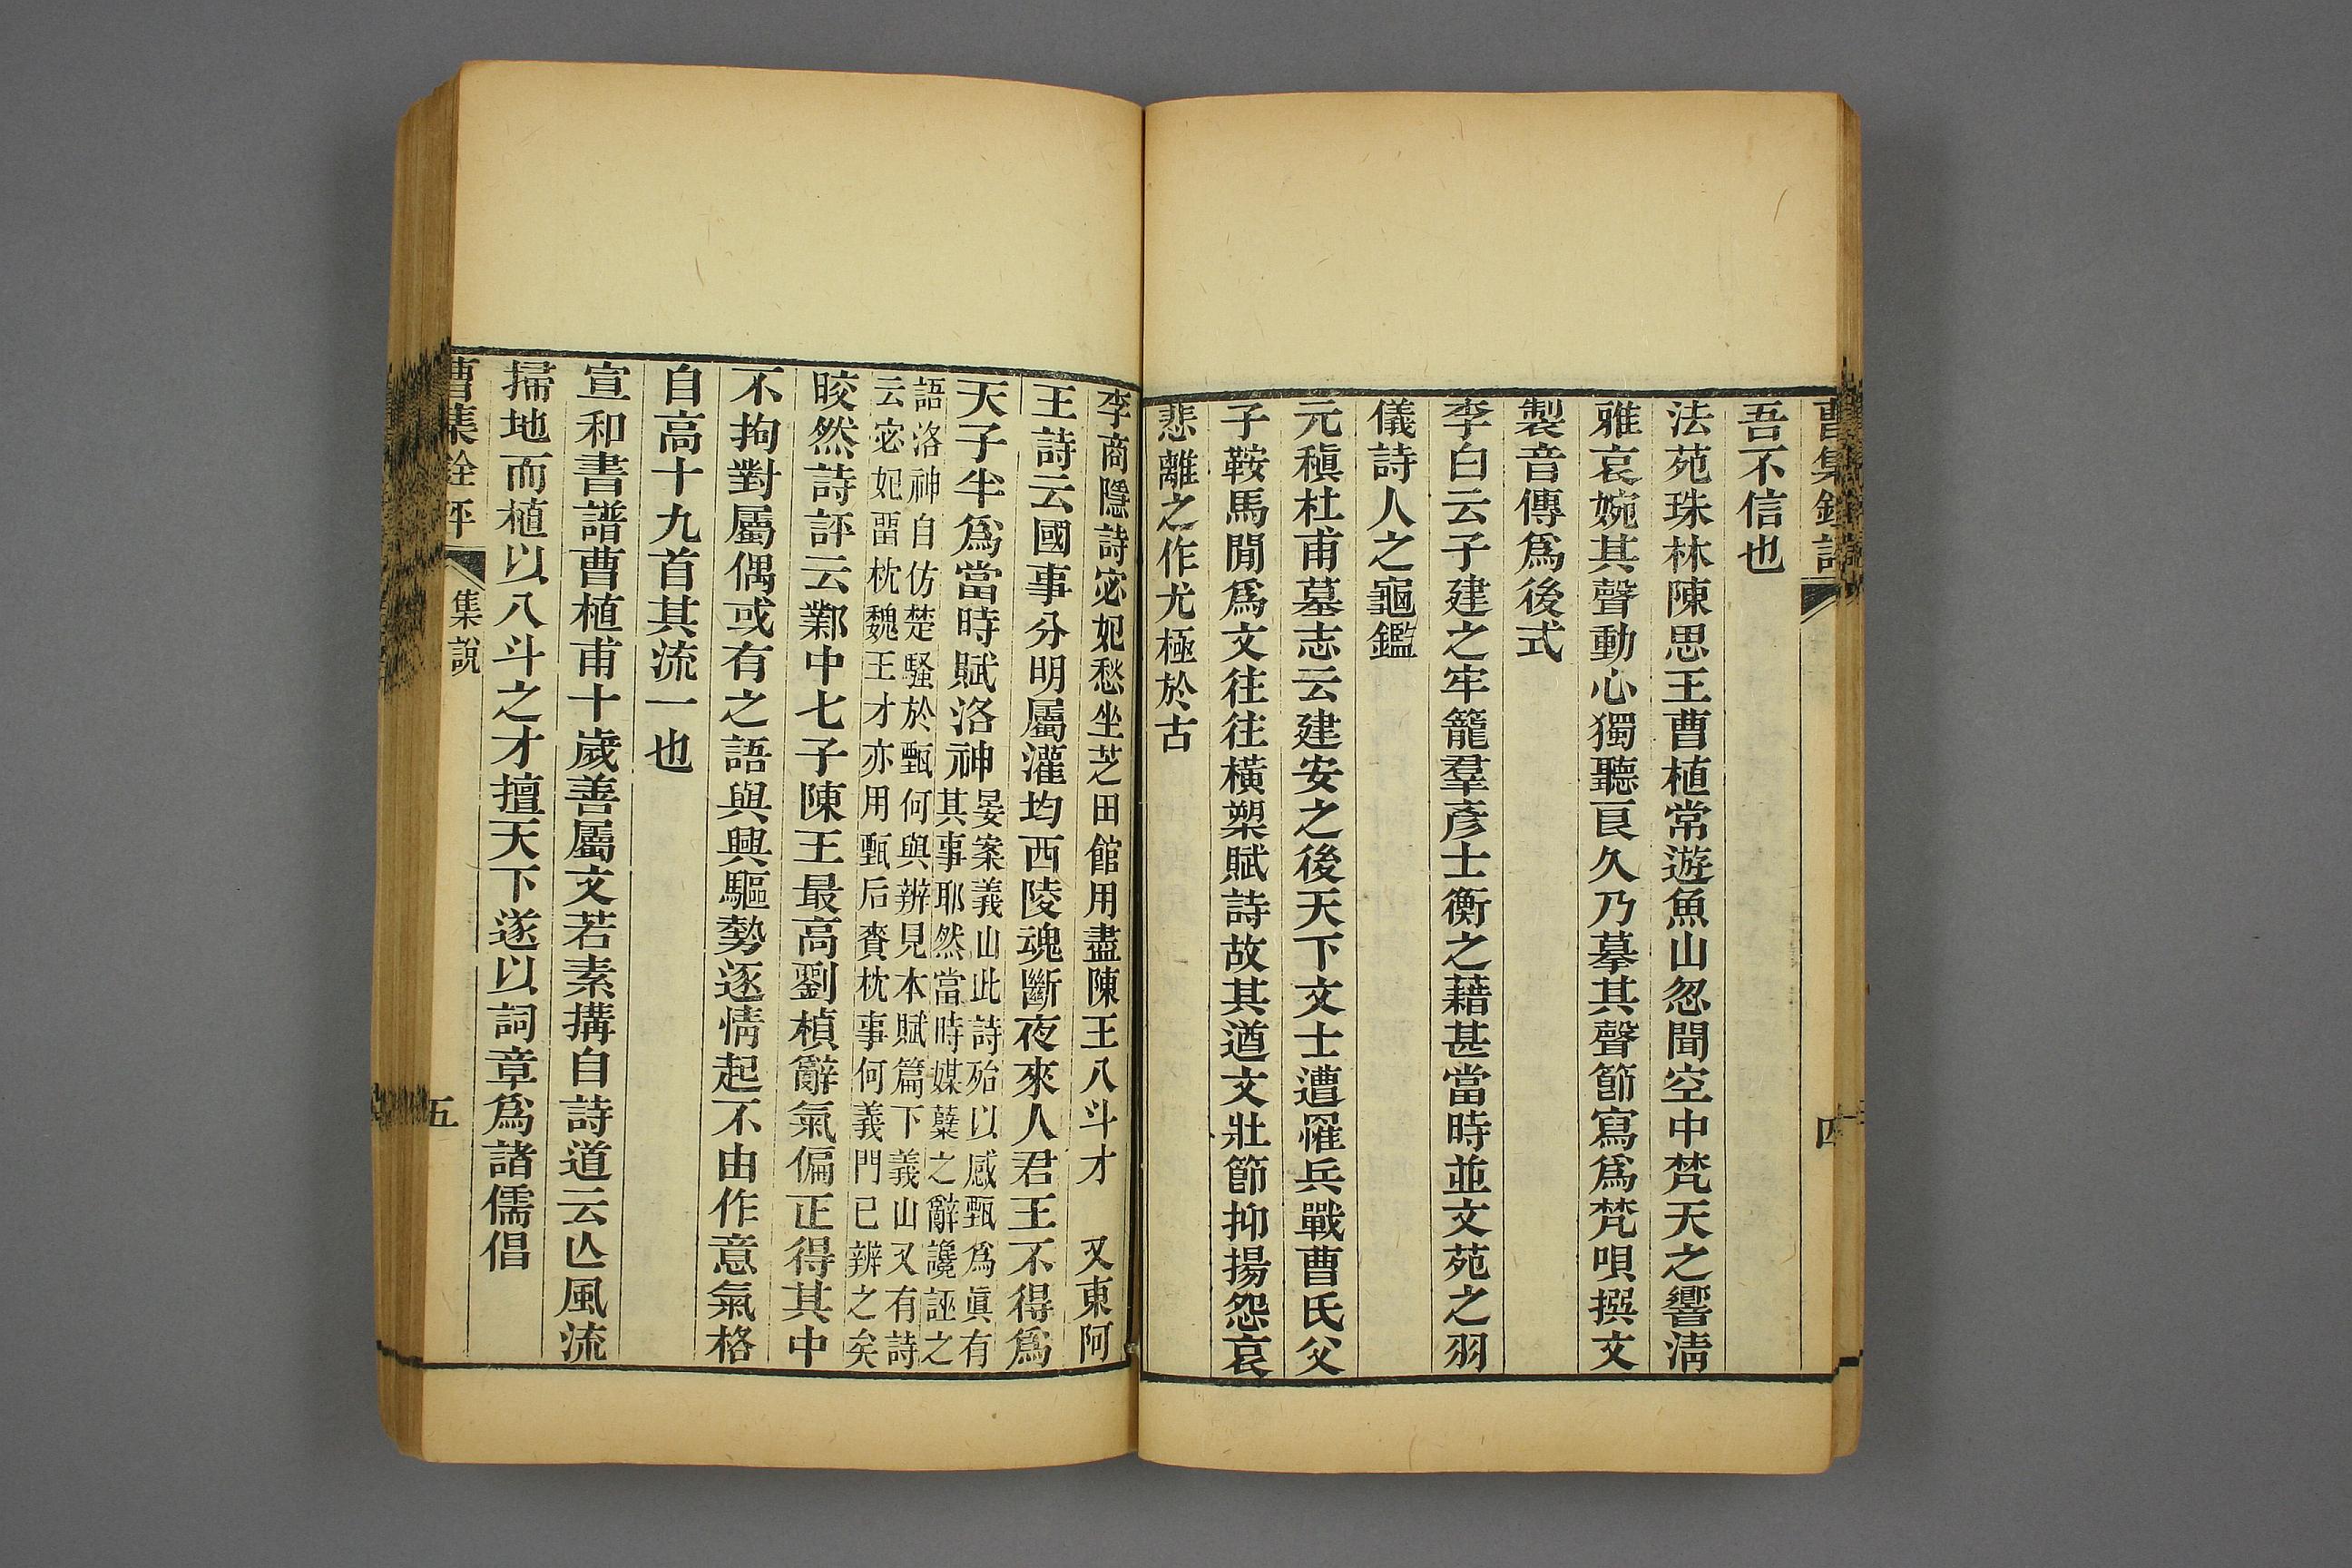 吾不信也
法苑珠林陳思王曹植常遊魚山忽聞空中梵天之響清
雅哀婉其聲動心獨聽良久乃摹其聲節寫爲梵唄撰文
製音傳爲後式
李白云子建之牢籠羣彥士衡之藉甚當時並文苑之羽
儀詩人之龜鑑
元稹杜甫墓志云建安之後天下文士遭罹兵戰曹氏父
子鞍馬閒爲文往往橫槊賦詩故其遒文壯節抑揚怨哀
悲離之作尤極於古
李商隱詩宓妃愁坐芝田館用盡陳王八斗才　又東阿
王詩云國事分明屬灌均西陵魂斷夜來人君王不得爲
天子半爲當時賦洛神
晏案義山此詩殆以感甄爲眞有
其事耶然當時媒蘗之辭讒誣之
語洛神自仿楚騷於甄何與辨見本賦篇下義山又有詩
云宓妃畱枕魏王才亦用甄后賚枕事何義門已辨之矣
晈然詩評云鄴中七子陳王最高劉楨辭氣偏正得其中
不拘對屬偶或有之語與興驅勢逐情起不由作意氣格
自高十九首其流一也
宣和書譜曹植甫十歲善屬文若素搆自詩道云亾風流
掃地而植以八斗之才擅天下遂以詞章爲諸儒倡
曹集銓評
集說
五